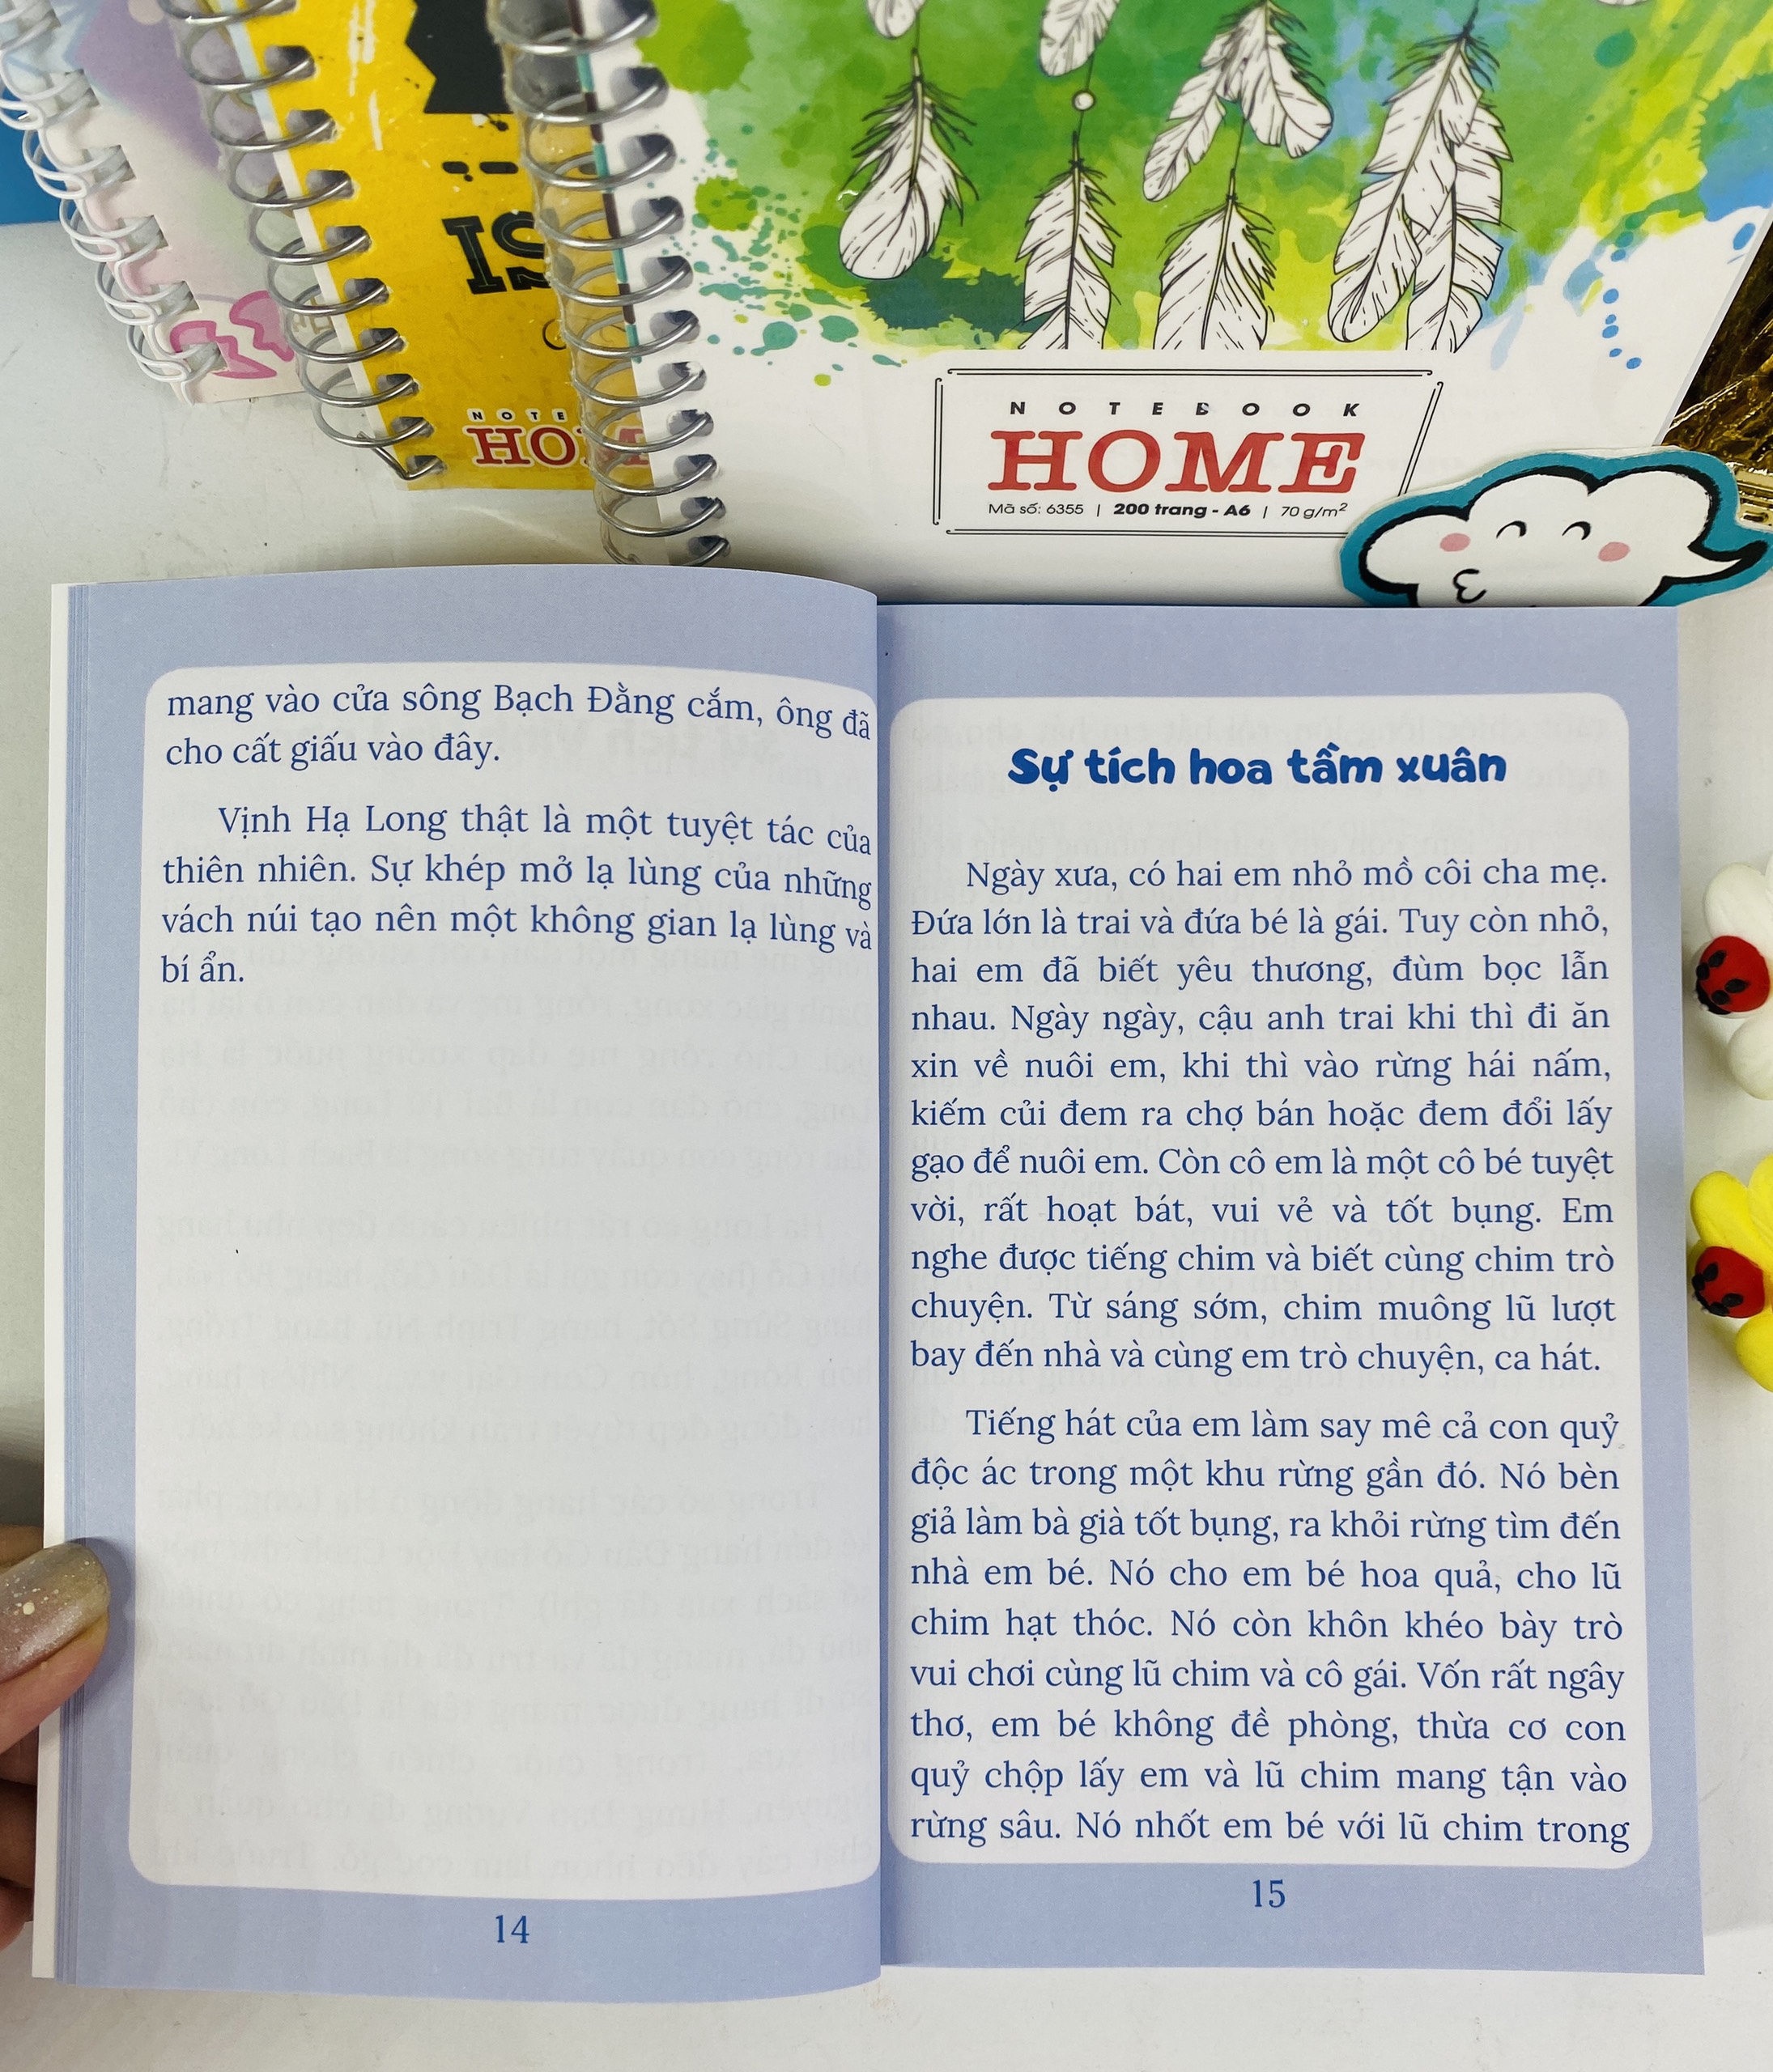 SI
NOTE
HOM
NOTEBOOK
HOME
Mã số: 6355 | 200 trang - A6 | 70 g/m²
mang vào cửa sông Bạch Đằng cắm, ông đã
cho cất giấu vào đây.
Vịnh Hạ Long thật là một tuyệt tác của
thiên nhiên. Sự khép mở lạ lùng của những
vách núi tạo nên một không gian lạ lùng và
bí ẩn.
14
Sự tích hoa tầm xuân
Ngày xưa, có hai em nhỏ mồ côi cha mẹ.
Đứa lớn là trai và đứa bé là gái. Tuy còn nhỏ,
hai em đã biết yêu thương, đùm bọc lẫn
nhau. Ngày ngày, cậu anh trai khi thì đi ăn
xin về nuôi em, khi thì vào rừng hái nấm,
kiếm củi đem ra chợ bán hoặc đem đổi lấy
gạo để nuôi em. Còn cô em là một cô bé tuyệt
vời, rất hoạt bát, vui vẻ và tốt bụng. Em
nghe được tiếng chim và biết cùng chim trò
chuyện. Từ sáng sớm, chim muông lũ lượt
bay đến nhà và cùng em trò chuyện, ca hát.
Tiếng hát của em làm say mê cả con quỷ
độc ác trong một khu rừng gần đó. Nó bèn
giả làm bà già tốt bụng, ra khỏi rừng tìm đến
nhà em bé. Nó cho em bé hoa quả, cho lũ
chim hạt thóc. Nó còn khôn khéo bày trò
vui chơi cùng lũ chim và cô gái. Vốn rất ngây
thơ, em bé không đề phòng, thừa cơ con
quỷ chộp lấy em và lũ chim mang tận vào
rừng sâu. Nó nhốt em bé với lũ chim trong
15